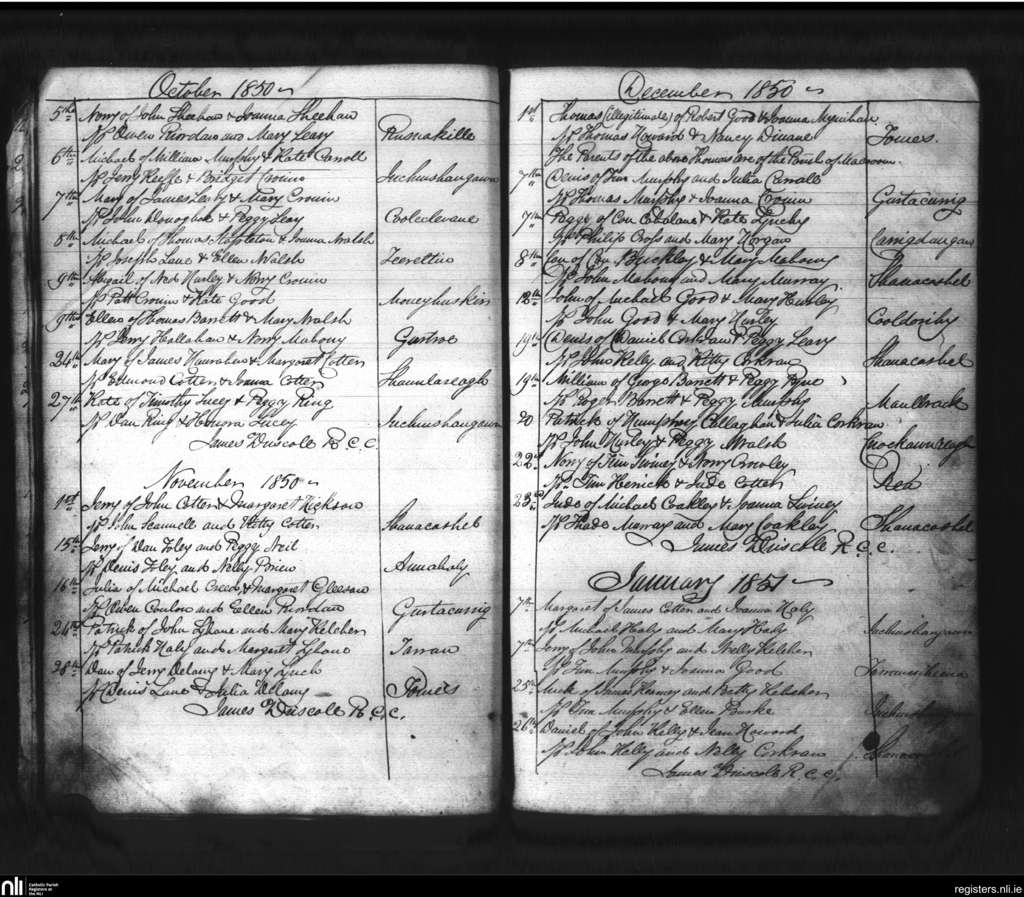 October 1850
5th Nony of John Sheehan & Joanna Sheehan
Sps Owen Riordan and Mary Leary
6th Michael of William Murphy & Kate Carroll
Sps Jerry Keeffe & Bridget Cronin Inchinshangawn
7th Mary of James Leary & Mary Cronin
Sps John Donoghue & Peggy Leary
8th Michael of Thomas Stapleton & Joanna Walsh
Sps Joseph Lane & Ellen Walsh
9th Abigail of Ned Hurley & Nony Cronin
Sps Patt Cronin & Kate Good
9th Ellen of Thomas Barrett & Mary Walsh
Sps Jerry Hallahan & Nony Mahony Gurtroe
24th Mary of James Hanrahan & Margaret Cotter
Sps Edmond Cotter & Joanna Cotter
27th Kate of Timothy Lucey & Peggy Ring
Sps Dan Ring & Honora Lucey Inchinshangawn
James Driscole R.C.C.
November 1850
1st Jerry of John Cotter & Margaret Hickson
Sps John Scannell and Kitty Cotter Shanacashel
15th Jerry of Dan Foley and Peggy Neil
Sps Denis Foley and Nelly Brien Annahaly
16th Julia of Michael Creed & Margaret Gleeson
Sps Owen and Ellen Riordan Gurtacurrig
24th Patrick of John Lyhane and Mary Kelcher
Sps Patrick Haly and Margaret Lyhane
28th Dan of Jerry Delany & Mary Lynch
Sps Denis Lane & Julia Delany Tomeis
James Driscole R.C.C.
December 1850
1st Thomas (illegitimate) of Robert Good & Joanna Moynihan
Sps Thomas Howard & Nancy Dinane Tomes.
The Parents of the above Thomas are of the Parish of Macroom.
7th Denis of Tim Murphy and Julia Carroll
Sps Thomas Murphy & Joanna Cronin Gurtacurrig
7th Peggy of Con & Kate Lynch
Sps Philip Cross and Mary Horgan Carrigdangan
8th Con of Con Buckley & Mary Mahony
Sps John Mahony and Mary Murray Shanacashel
12th John of Michael Good & Mary Hurley
Sps John Good & Mary Hurley Cooldorihy
19th Denis of Daniel Corkran & Peggy Leary
Sps John Kelly and Kitty Corkran Shanacashel
19th William of George Barrett & Peggy Pyne
Sps Roger Barrett & Peggy Murphy Maulbrack
20 Patrick of Humphrey Callaghan & Julia Corkran
Sps John Hurley & Peggy Walsh
22d Nony of Tim Twiney & Nony Crowley
Sps Tim Herrick & Jude Cotter Rea
23rd Jude of Michael Coakley & Joanna Twiney
Sps Thade Murray and Mary Coakley Shanacashel
James Driscole R.C.C.
January 1851
7th Margaret of James Cotter and Joanna Haly
Sps Michael Haly and Mary Haly Inchinshangawn
7th Jerry of John Murphy and Nelly Kelcher
Sps Tim Murphy & Joanna Good
25th Mick of James Kearney and Betty Kelcher
Sps Tim Murphy & Ellen Burke
26th Daniel of John Kelly & Jean Howard
Sps John Kelly and Nelly Corkran
James Driscole R.C.C.
nli
Catholic Parish
Registers at
the NLI
registers.nli.ie